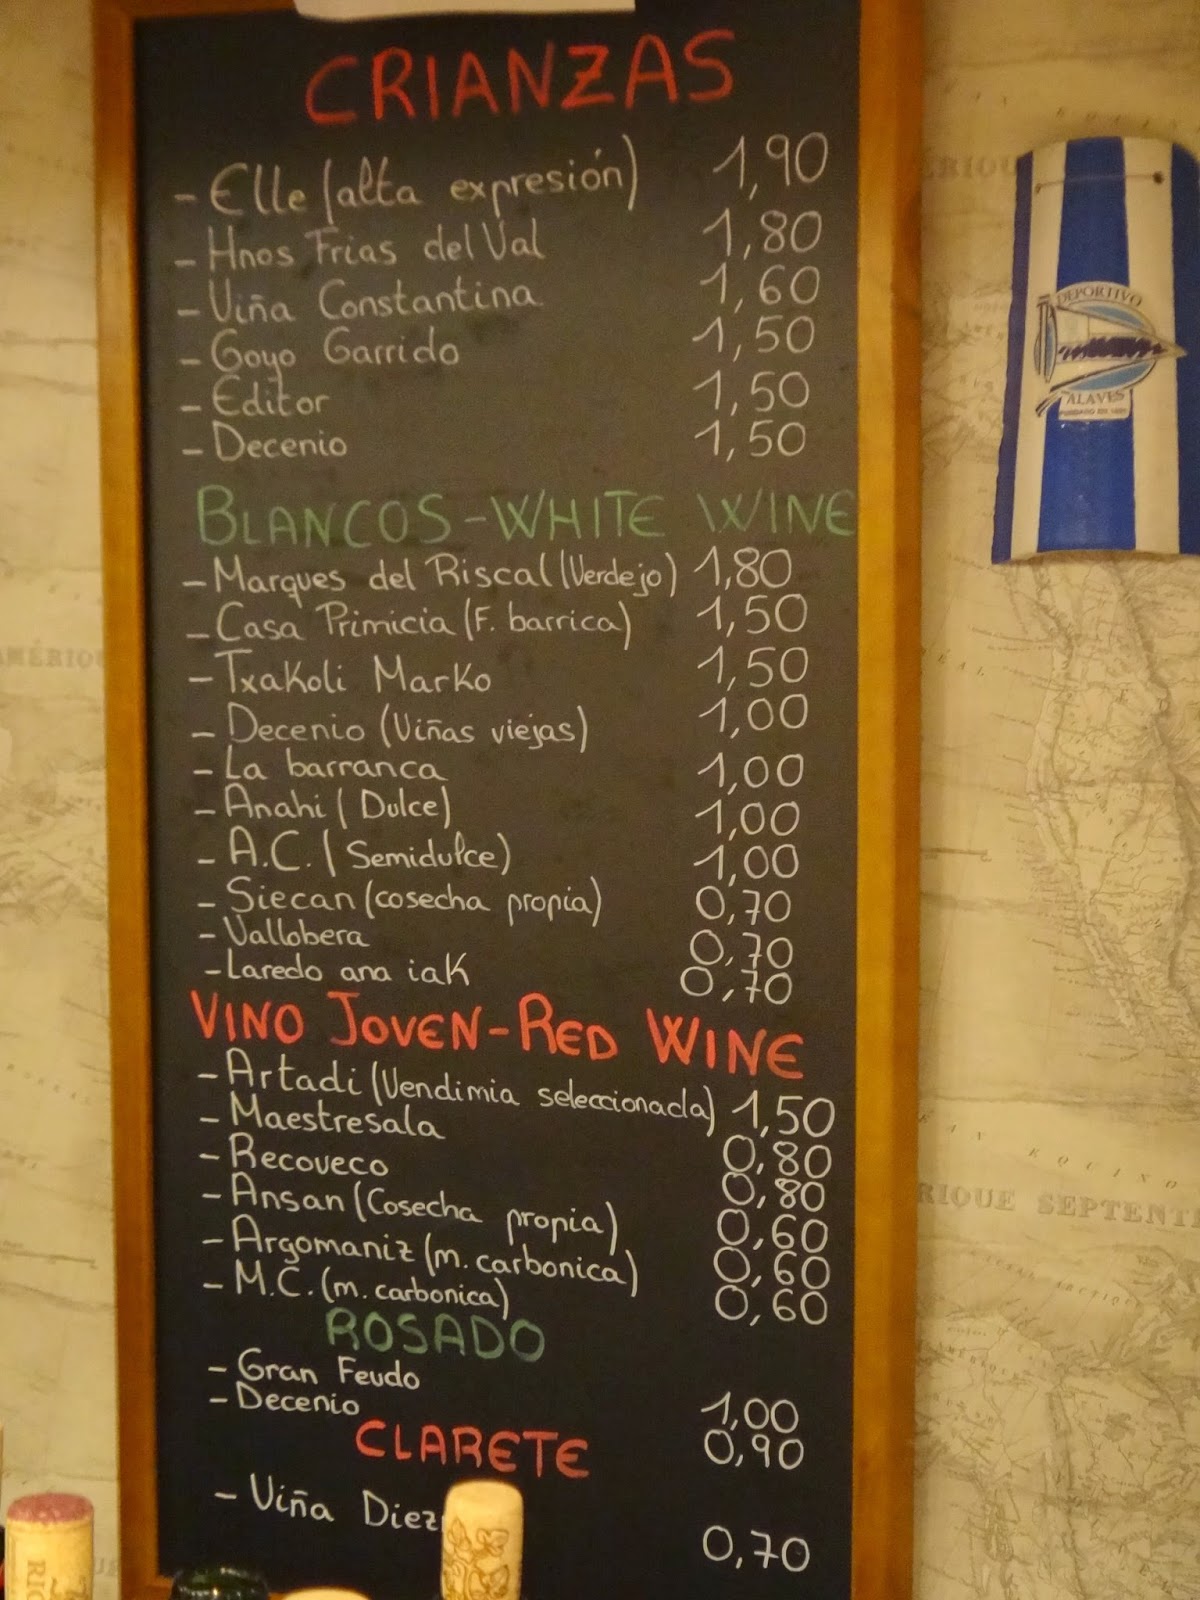 CRIANZAS
- Elle (alta expresión) 1,90
- Hnos Frias del Val 1,80
- Viña Constantina 1,60
- Goyo Garrido 1,50
- Editor 1,50
- Decenio 1,50
BLANCOS-WHITE WINE
- Marques del Riscal (Verdejo) 1,80
- Casa Primicia (F. barrica) 1,50
- Txakoli Marko 1,50
- Decenio (Viñas viejas) 1,00
- La barranca 1,00
- Anahi (Dulce) 1,00
- A.C. (Semidulce) 1,00
- Siecan (cosecha propia) 0,70
- Vallobera 0,70
- Laredo ana iak 0,70
VINO JOVEN-RED WINE
- Artadi (Vendimia seleccionada) 1,50
- Maestresala 0,80
- Recoveco 0,80
- Ansan (Cosecha propia) 0,60
- Argomaniz (m. carbonica) 0,60
- M.C. (m. carbonica) 0,60
ROSADO
- Gran Feudo 1,00
- Decenio 0,90
CLARETE
- Viña Diez 0,70
DEPORTIVO
ALAVES
RIQUE SEPTENT